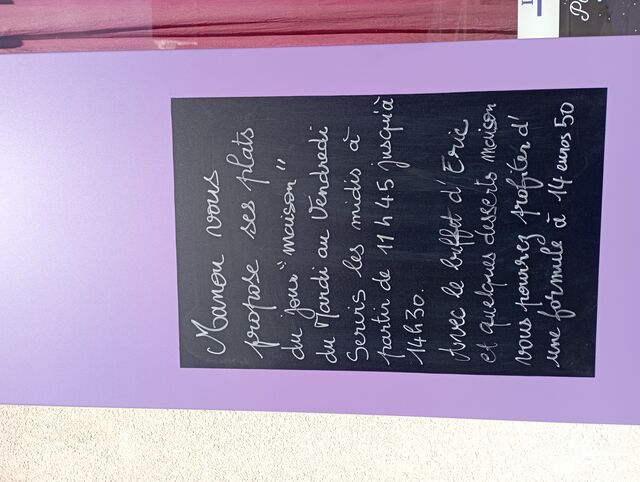 Manou vous
propose ses plats
du jour "maison"
du Mardi au Vendredi
Servis les midis à
partir de 11h45 jusqu'à
14h30.
Avec le buffet d'Eric
et quelques desserts maison
vous pourrez profiter d'
une formule à 14 euros 50